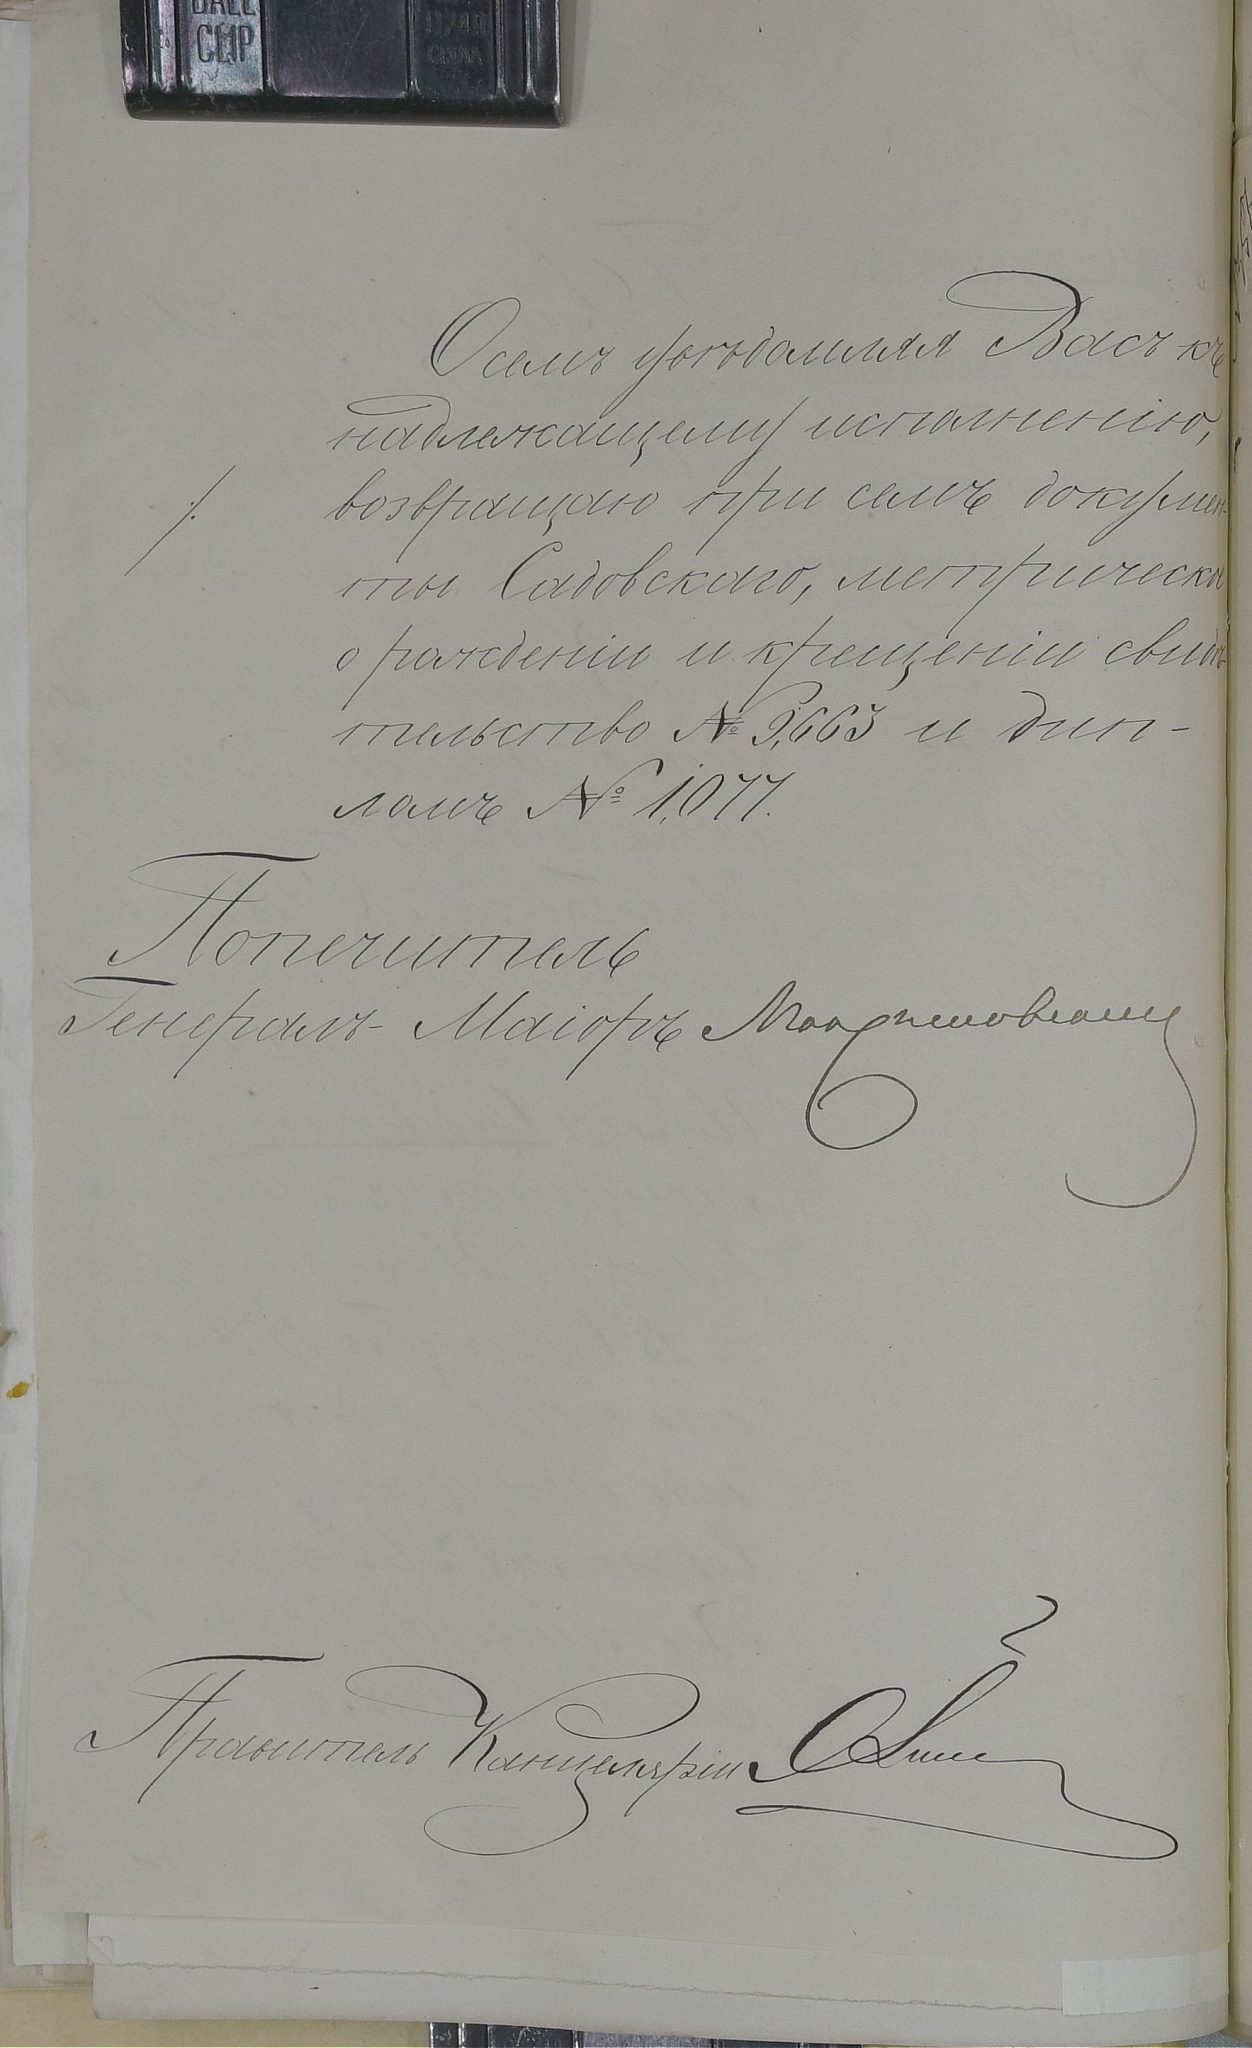 BALL
CLIP
CHINA
О семъ увѣдомляя Васъ къ
надлежащему исполненію,
возвращаю при семъ докумен-
./.
ты Садовскаго, метрическое
о рожденіи и крещеніи свидѣ-
тельство № 9,663 и дип-
ломъ № 1,077.
Попечитель
Генералъ-Маіоръ
Правитель Канцеляріи